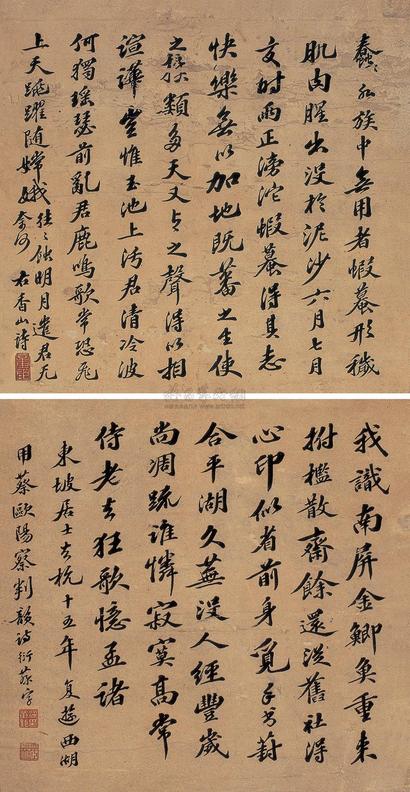 蠢〻水族中無用者蝦蟇形穢
肌肉腥出沒於泥沙六月七月
交時雨正滂沱蝦蟇得其志
快樂無以加地既蕃之生使
之族類多天又與之聲得以相
諠譁豈惟玉池上污君清冷波
何獨瑤瑟前亂君鹿鳴歌常恐飛
上天跳躍隨嫦娥往〻蝕明月遣君无
奈何 右香山詩
我識南屏金鯽魚重來
拊檻散齋餘還從舊社得
心印似省前身覓手書葑
合平湖久蕪沒人經豐歲
尚凋疏誰憐寂寞高常
侍老去狂歌憶孟諸
東坡居士去杭十五年復遊西湖
用蔡歐陽察判韻詩衍蔡字